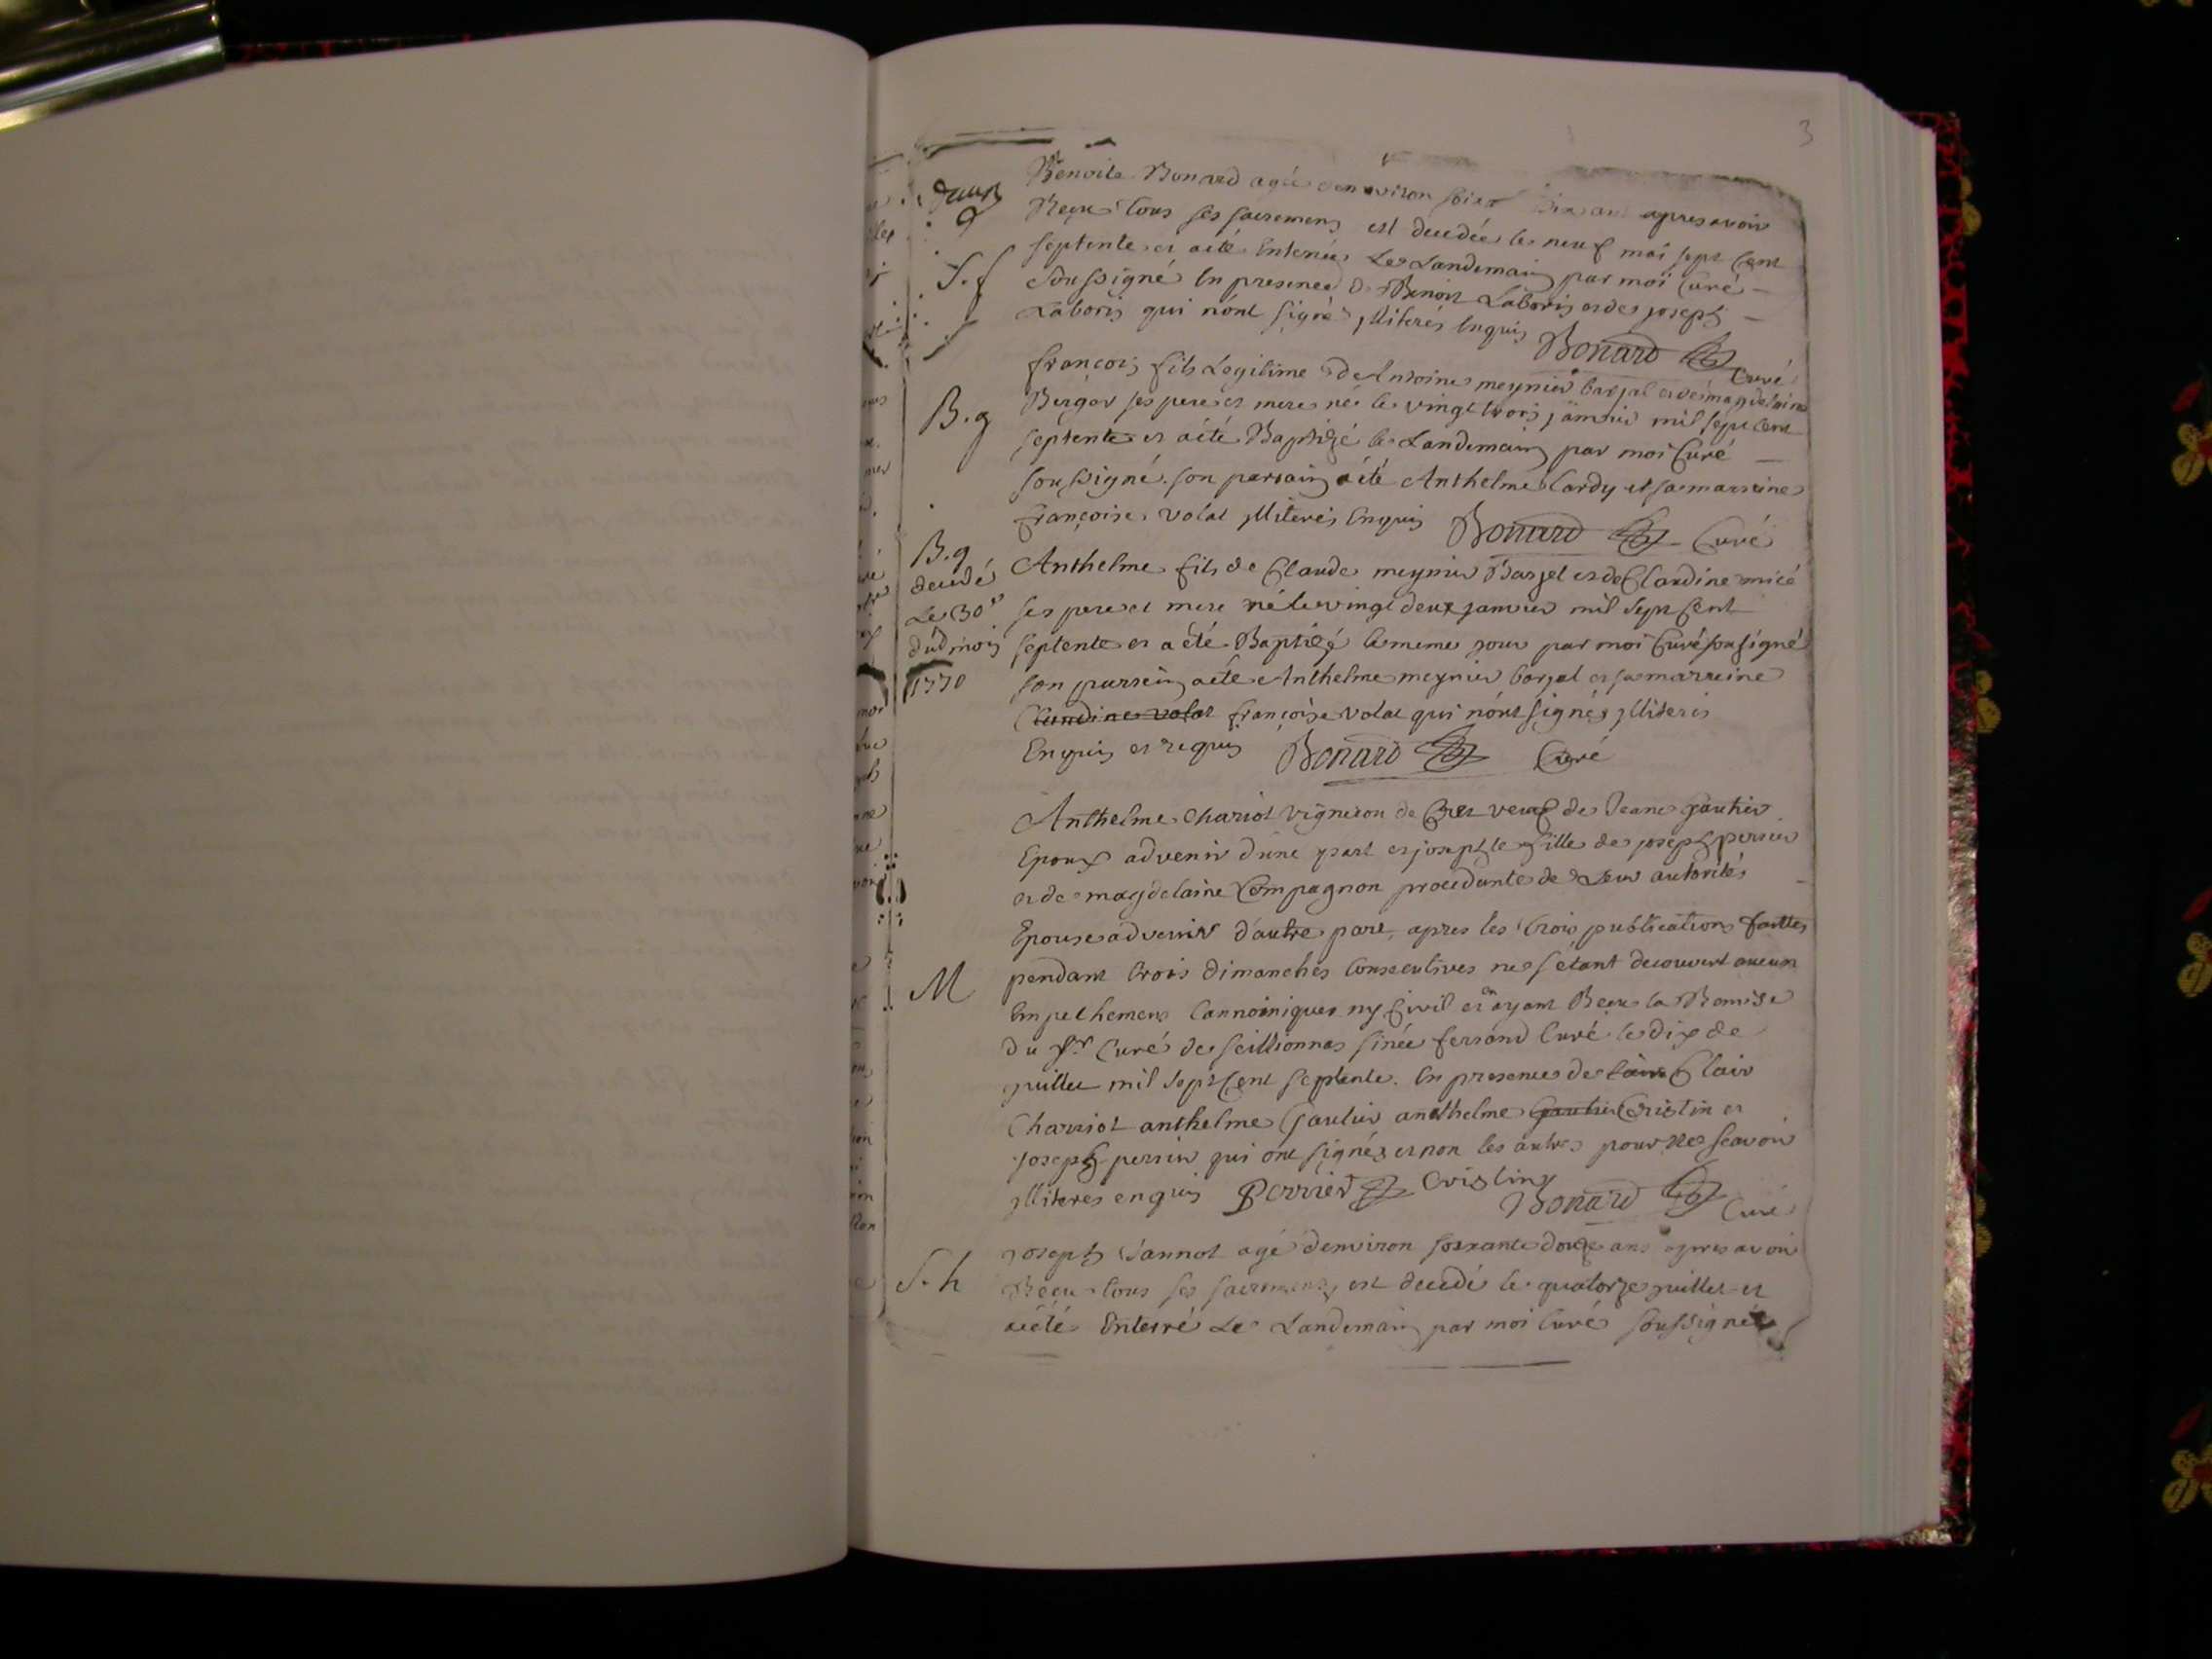 3
Benoite Bonard agée d'environ ans apres avoir
Reçu tous ses sacremens est decedée le neuf mai sept cent
septente et a été Enterrée Le Landemain par moi Curé
S. f
soussigné En presence de Benoit Laboris et de joseph
Laboris qui n'ont signé jlliterés Enquis Bonard Curé
françois fils Legitime de Antoine meynier barjal et de magdelaine
B. g
Berger ses pere et mere né le vingt trois janvier mil sept cent
septente et a été Baptizé le Landemain par moi Curé
soussigné. son parrain a été Anthelme Cardy et sa marreine
françoise volat jlliterés Enquis Bonard Curé
B. g
decedé
Le 30e
dud mois
1770
Anthelme fils de Claude meynier Barjel et de Claudine micé
ses pere et mere né le vingt deux janvier mil sept Cent
septente et a été Baptizé le meme jour par moi Curé sousigné
son parrein a été Anthelme meynier borjal et sa marreine
Claudine volat françoise volat qui n'ont signés jlliterés
Enquis et requis Bonard Curé
Anthelme Chariot vigneron de veuf de Jeane gautier
Epoux advenir d'une part et josephte fille de joseph perrier
et de magdelaine Compagnon procedante de Leur autorités
Epouse advenir d'autre part, apres les trois publications faittes
M
pendant trois dimanches Consecutives ne s'etant decouvert aucun
Empethement Cannoinique ny Civil et en ayant Reçu la Remise
du Sr Curé de seillionnas sinée ferrand Curé le dix de
juillet mil sept Cent septente. En presence de Clair
Charriot anthelme Gautier anthelme Gautier Cristin et
joseph perrier qui ont signés et non les autres pour ne scavoir
jlliteres enquis Perrier Cristin
Bonard Curé
S. h
joseph Jannot agé d'environ soixante douze ans apres avoir
Reçu tous ses sacremens est decedé le quatorze juillet et
a été Enterré Le Landemain par moi Curé soussigné